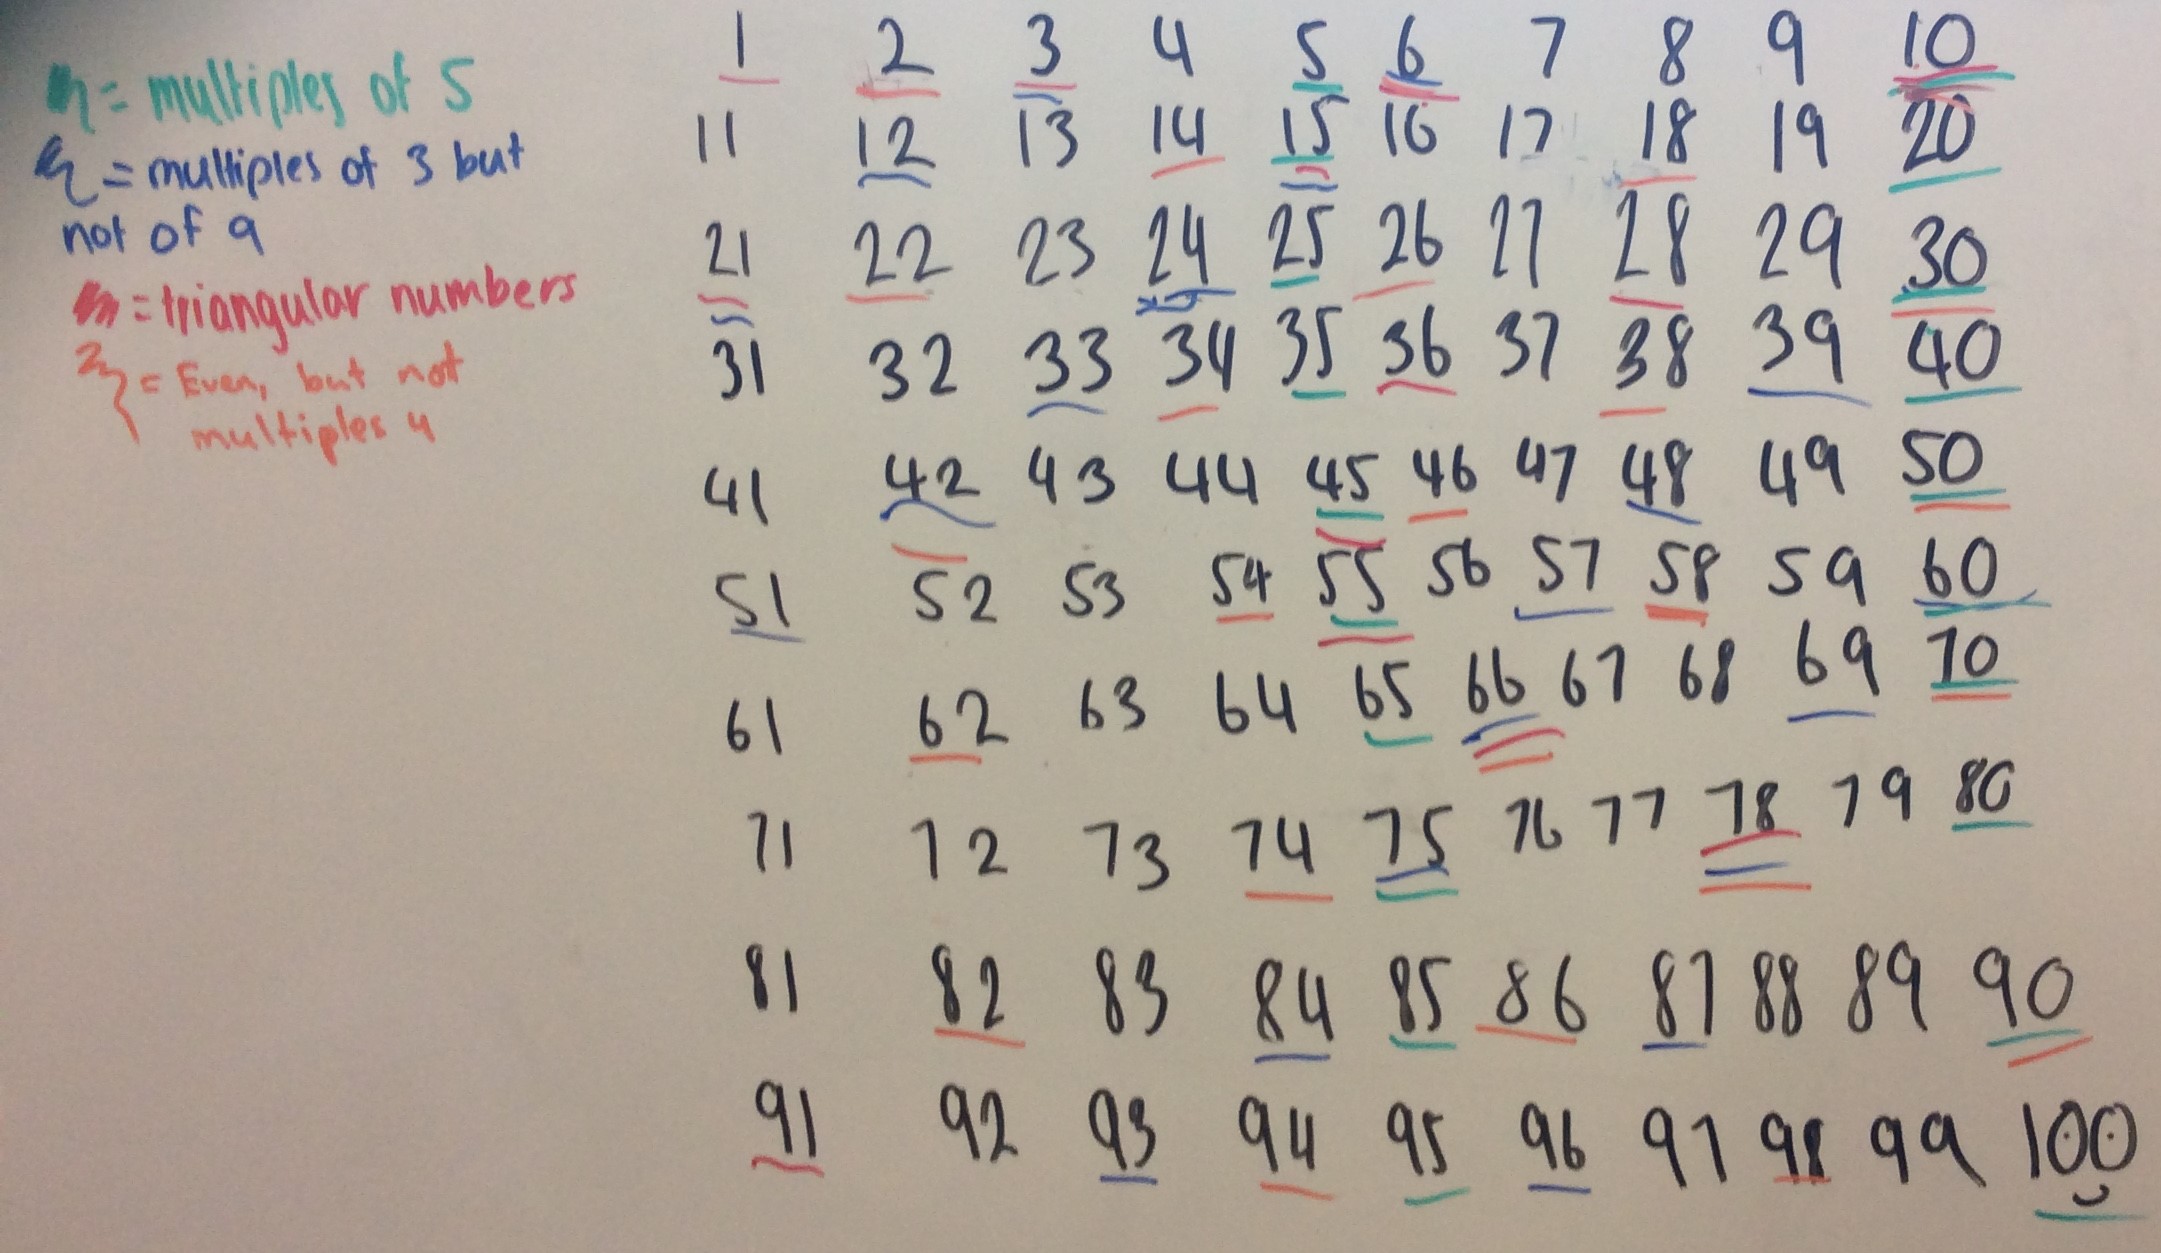 = multiples of 5
= multiples of 3 but
not of 9
= triangular numbers
= Even, but not
multiples 4
1 2 3 4 5 6 7 8 9 10
11 12 13 14 15 16 17 18 19 20
21 22 23 24 25 26 27 28 29 30
31 32 33 34 35 36 37 38 39 40
41 42 43 44 45 46 47 48 49 50
51 52 53 54 55 56 57 58 59 60
61 62 63 64 65 66 67 68 69 70
71 72 73 74 75 76 77 78 79 80
81 82 83 84 85 86 87 88 89 90
91 92 93 94 95 96 97 98 99 100